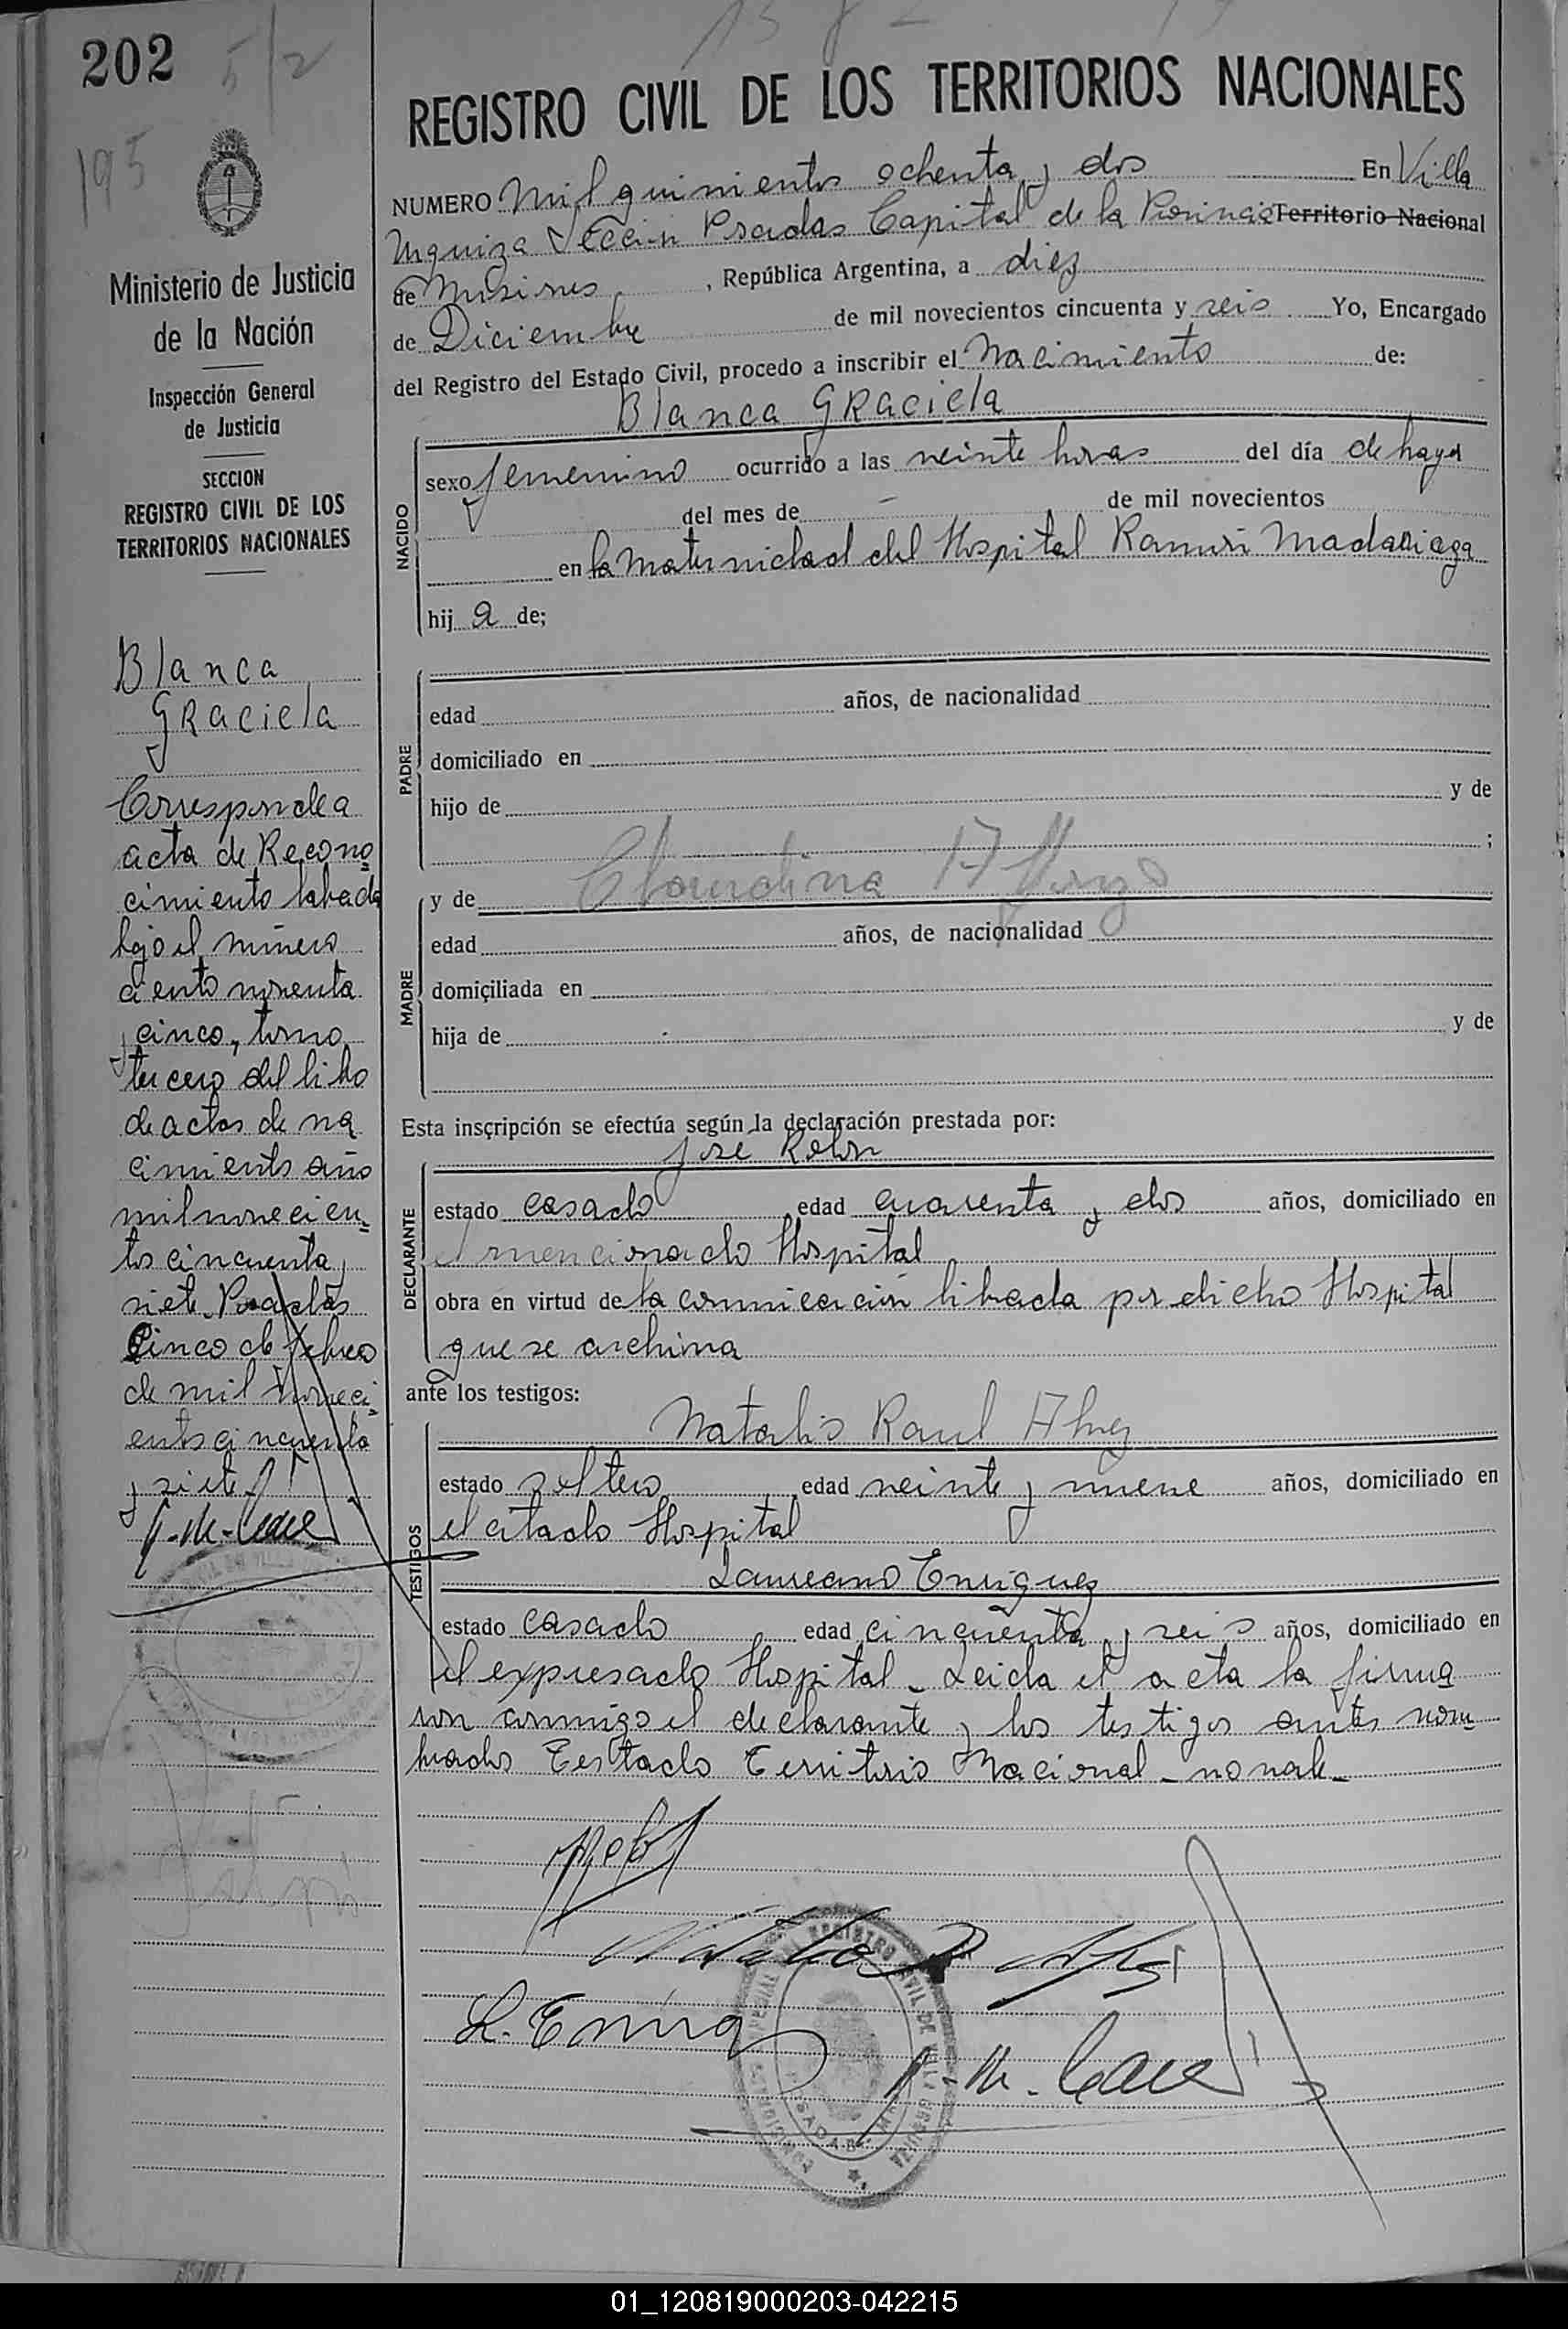 202 5/2
195
Ministerio de Justicia
de la Nación
Inspección General
de Justicia
SECCION
REGISTRO CIVIL DE LOS
TERRITORIOS NACIONALES
Blanca
Graciela
Corresponde a
acta de Recono
cimiento labada
bajo el número
ciento noventa
y cinco, tomo
tercero del libro
de actas de na
cimiento año
mil novecien
tos cincuenta y
siete. Posadas
Cinco de febrero
de mil noveci
entos cincuenta
y siete
REGISTRO CIVIL DE LOS TERRITORIOS NACIONALES
NUMERO Mil quinientos ochenta y dos En Villa
Urquiza Sección Posadas Capital de la Provincia Territorio Nacional
de Misiones, República Argentina, a diez
de Diciembre de mil novecientos cincuenta y seis Yo, Encargado
del Registro del Estado Civil, procedo a inscribir el Nacimiento de:
Blanca Graciela
NACIDO
sexo femenino ocurrido a las veinte horas del día de hayer
del mes de de mil novecientos
en la Maternidad del Hospital Ramón Madariaga
hij a de;
PADRE
edad años, de nacionalidad
domiciliado en
hijo de y de
;
MADRE
y de Claudina
edad años, de nacionalidad
domiciliada en
hija de y de
Esta inscripción se efectúa según la declaración prestada por:
José Rolon
DECLARANTE
estado casado edad cuarenta y dos años, domiciliado en
el mencionado Hospital
obra en virtud de la comunicación librada por dicho Hospital
que se archiva
ante los testigos:
TESTIGOS
Natalio Raul
estado soltero edad veinte y nueve años, domiciliado en
el citado Hospital
Laureano Enriquez
estado casado edad cincuenta y seis años, domiciliado en
el expresado Hospital _ Leida el acta la firma
ron conmigo el declarante y los testigos antes nom
brados Testado Territorio Nacional _ no vale _
L. Enriq
01_120819000203-042215